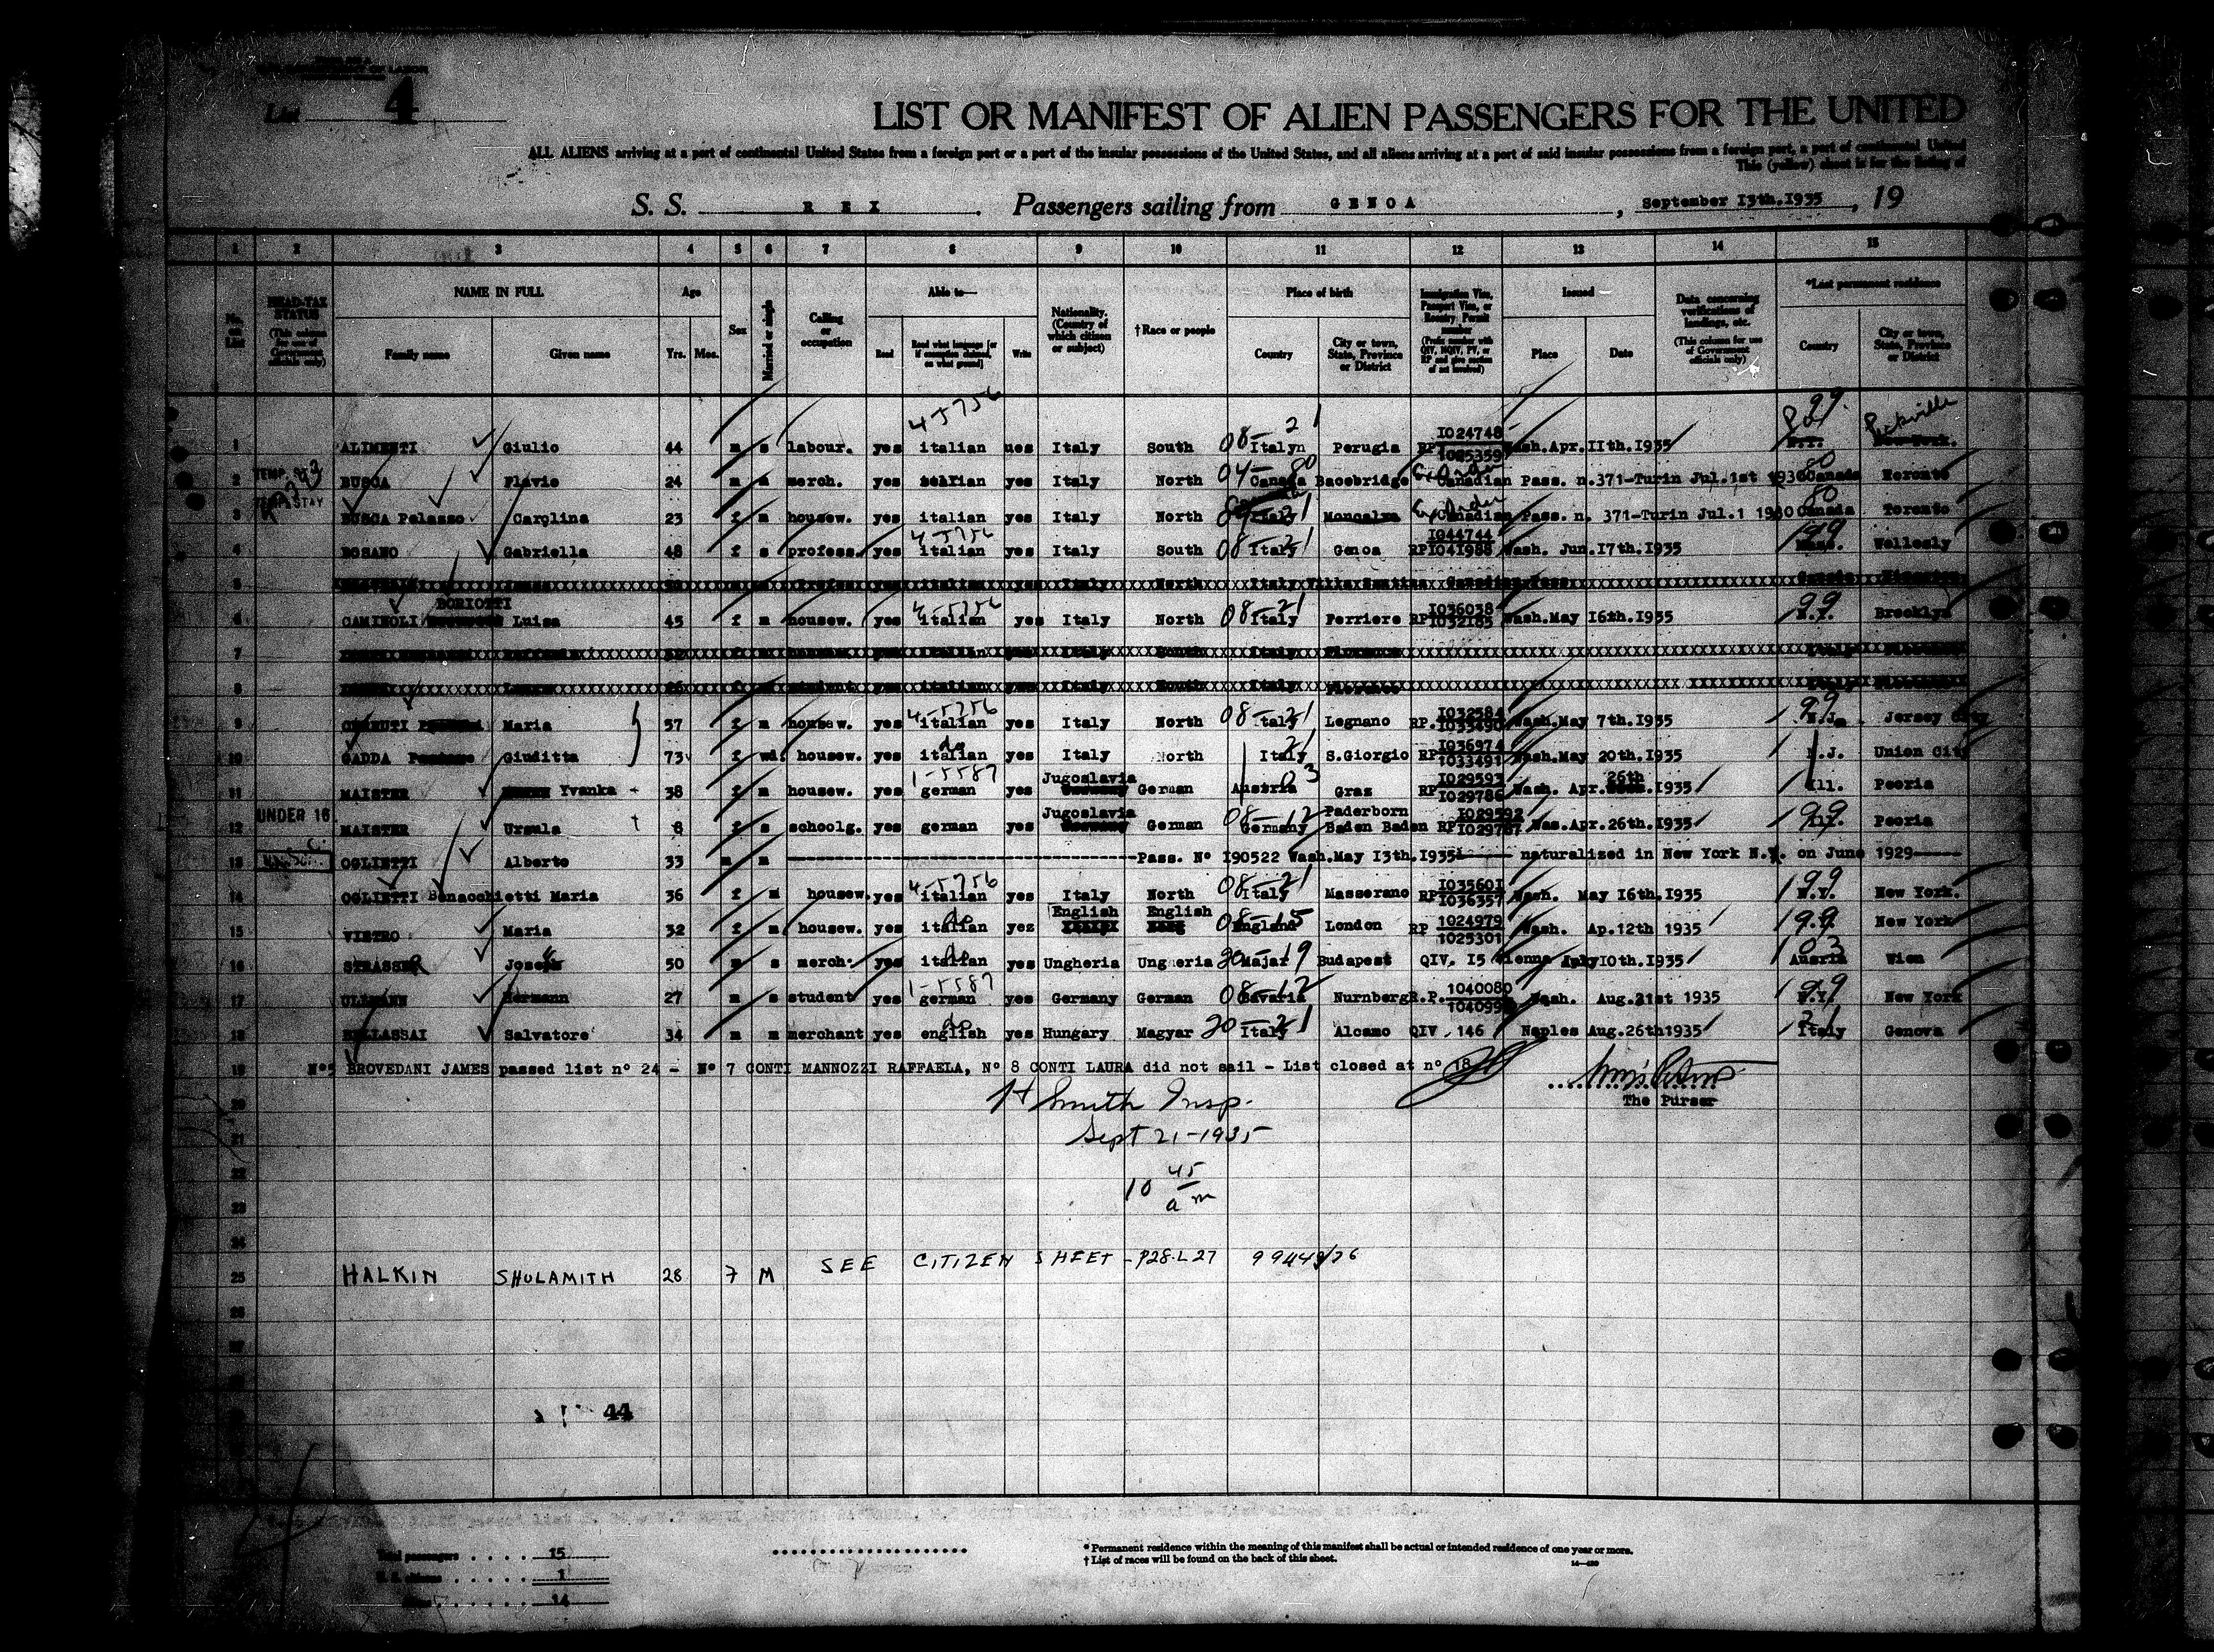 List 4
LIST OR MANIFEST OF ALIEN PASSENGERS FOR THE UNITED
ALL ALIENS arriving at a port of continental United States from a foreign port or a port of the insular possessions of the United States, and all aliens arriving at a port of said insular possessions from a foreign port, a port of continental United
This (yellow) sheet is for the listing of
S. S. R E X . Passengers sailing from G E N O A , September 13th.1935 , 19
1 2 3 4 5 6 7 8 9 10 11 12 13 14 15
No. on List HEAD-TAX STATUS (This column for use of Government officials only) NAME IN FULL Family name Given name Age Yrs. Mos. Sex Married or single Calling or occupation Able to— Read Read what language [or if exemption claimed, on what ground] Write Nationality. (Country of which citizen or subject) † Race or people Place of birth Country City or town, State, Province or District Immigration Visa, Passport Visa, or Reentry Permit number (Prefix number with QIV, NQIV, PV, or RP and give section of act involved) Issued— Place Date Data concerning verifications of landings, etc. (This column for use of Government officials only) *Last permanent residence Country City or town, State, Province or District
1 ALIMENTI Giulio 44 m s labour. yes 4-5756 italian ues Italy South 08-21 Italyn Perugia RP I024748 I025359 Wash.Apr.IIth.I935 99 N.Y. New York.
2 TEMP. BUSCA Flavio 24 m m merch. yes italian yes Italy North 04-80 Canada Bacebridge Canadian Pass. n.371-Turin Jul.1st 1930 80 Canada Toronto
3 TEMP. STAY BUSCA Palasso Carolina 23 f m housew. yes italian yes Italy North Italy Moncalvo Canadian Pass. n. 371-Turin Jul.1 1930 80 Canada Toronto
4 ROSANO Gabriella 48 f s profess. yes 4-5756 italian yes Italy South 08-21 Italy Genoa RP I044744 I041988 Wash. Jun.I7th.I935 199 Mass. Wellesly
5 italian yes Italy North Italy Villa Santina
6 CAMINOLI BORIOTTI Luisa 45 f m housew. yes 4-5756 italian yes Italy North 08-21 Italy Ferriere RP I036038 I032185 Wash.May I6th.I935 99 N.Y. Brooklyn
7 italian Italy South Italy Florence
8 italian yes Italy South Italy Florence
9 CERUTI Maria 57 f m housew. yes 4-5756 italian yes Italy North 08-21 Italy Legnano RP. I032584 I033490 Wash.May 7th.I935 199 N.J. Jersey City
10 GADDA Giuditta 73 f wd. housew. yes do italian yes Italy North 21 Italy S.Giorgio RP I036974 I033491 Wash.May 20th.I935 N.J. Union City
11 MAISTER Yvanka 38 f m housew. yes 1-5587 german yes Jugoslavia German 03 Austria Graz RP I029593 I029786 Wash. Apr. 26th .I935 Ill. Peoria
12 UNDER 16 MAISTER Ursula 8 f s schoolg. yes german yes Jugoslavia German 08-12 Germany Paderborn Baden Baden RP I029592 I029787 Was.Apr.26th.I935 199 Peoria
13 OGLIETTI Alberto 33 m m Pass. N° I90522 Wash.May I3th.I935 naturalized in New York N.Y. on June 1929
14 OGLIETTI Benacchietti Maria 36 f m housew. yes 4-5756 italian yes Italy North 08-21 Italy Masserano RP I03560I I036357 Wash. May I6th.I935 199 N.Y. New York.
15 VIETRO Maria 32 f m housew. yes do italian yes English English 08-15 England London RP 1024979 1025301 Wash. Ap.12th 1935 199 New York
16 STRASSER Josef 50 m s merch. yes do italian yes Ungheria Ungheria 20-19 Majar Budapest QIV. I5 Vienna July I0th.I935 103 Ausria Wien
17 ULLMANN Hermann 27 m s student yes 1-5587 german yes Germany German 08-12 Bavaria Nurnberg R.P. 1040080 104099 Wash. Aug.21st 1935 199 N.Y. New York
18 BELLASSAI Salvatore 34 m m merchant yes do english yes Hungary Magyar 20-21 Italy Alcamo QIV . 146 Naples Aug.26th1935 21 Italy Genova
19 N°5 BROVEDANI JAMES passed list n° 24 - N° 7 CONTI MANNOZZI RAFFAELA, N° 8 CONTI LAURA did not sail - List closed at n° 18
The Purser
20 H Smith Insp.
21 Sept 21-1935
22
23 10 45 a m
24
25 HALKIN SHULAMITH 28 7 M SEE CITIZEN SHEET - P28.L27
26
27
44
Total passengers . . . . 15
U. S. citizens . . . . . 1
Aliens . . . . . . 14
* Permanent residence within the meaning of this manifest shall be actual or intended residence of one year or more.
† List of races will be found on the back of this sheet.